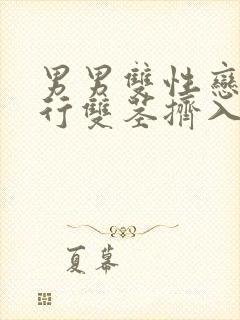 男男雙性戀
行雙莖擠入
夏幕